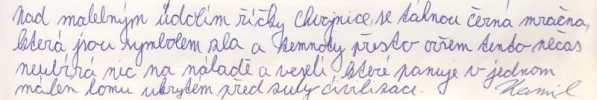 nad malebným údolím říčky Chvojnice se táhnou černá mračna,
která jsou symbolem zla a temnoty přesto ovšem tento nečas
neubírá nic na náladě a veselí které panuje v jednom
malém lomu ukrytém před civilizace. Kamil